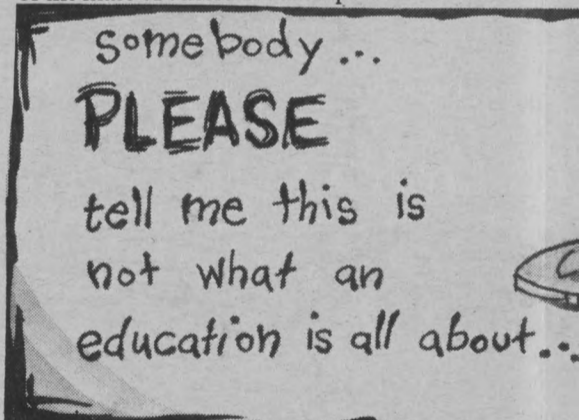 somebody...
PLEASE
tell me this is
not what an
education is all about...